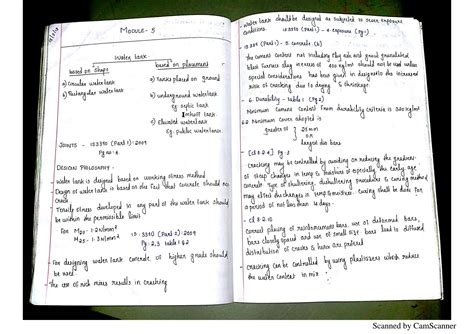 MODULE - 5
Water tank
based on shape
based on placement
a) Circular water tank
b) Rectangular water tank
a) Tanks placed on ground
b) underground water tank
eg: septic tank
Imhoff tank
c) Elevated water tank
Eg: public water tank
JOINTS - IS 3370 (Part 1): 2009
DESIGN PHILOSOPHY -
Water tank is designed based on working stress method
Design of water tank is based on the fact that concrete should not
crack
Tensile stress developed in any part of the water tank should be
within the permissible limit
For M20 : 1.2 N/mm²
M25 : 1.3 N/mm²
IS : 3370 (Part 2): 2009
Pg: 2,3 table 1 & 2
For designing water tank concrete of higher grade should
be used
The use of rich mixes results in cracking
water tank should be designed as subjected to severe exposure
conditions
IS 3370 (Part 1) - 4 exposure (Pg:1)
IS 3370 (Part 1) - 5 concrete
The cement content not including fly ash and ground granulated
blast furnace slag in excess of 400 kg/m3 should not be used unless
special consideration has been given in design to the increased
risk of cracking due to drying shrinkage
6. Durability - table 1 (Pg 2)
Minimum cement content from durability criteria is 320 kg/m3
Minimum cover adopted is
greater of 25 mm
or
largest dia bar
(cl 8.2.4)
Cracking may be controlled by avoiding or reducing the gradient
of steep changes in temp & moisture especially in the early age
a period of not less than
cl 8.2.10
Correct placing of reinforcement bars, use of deformed bars,
bars closely spaced and use of small size bars lead to diffused
distribution of cracks & hence are preferred
cracking can be controlled by using plasticizers which reduce
the water content in mix
Scanned by CamScanner